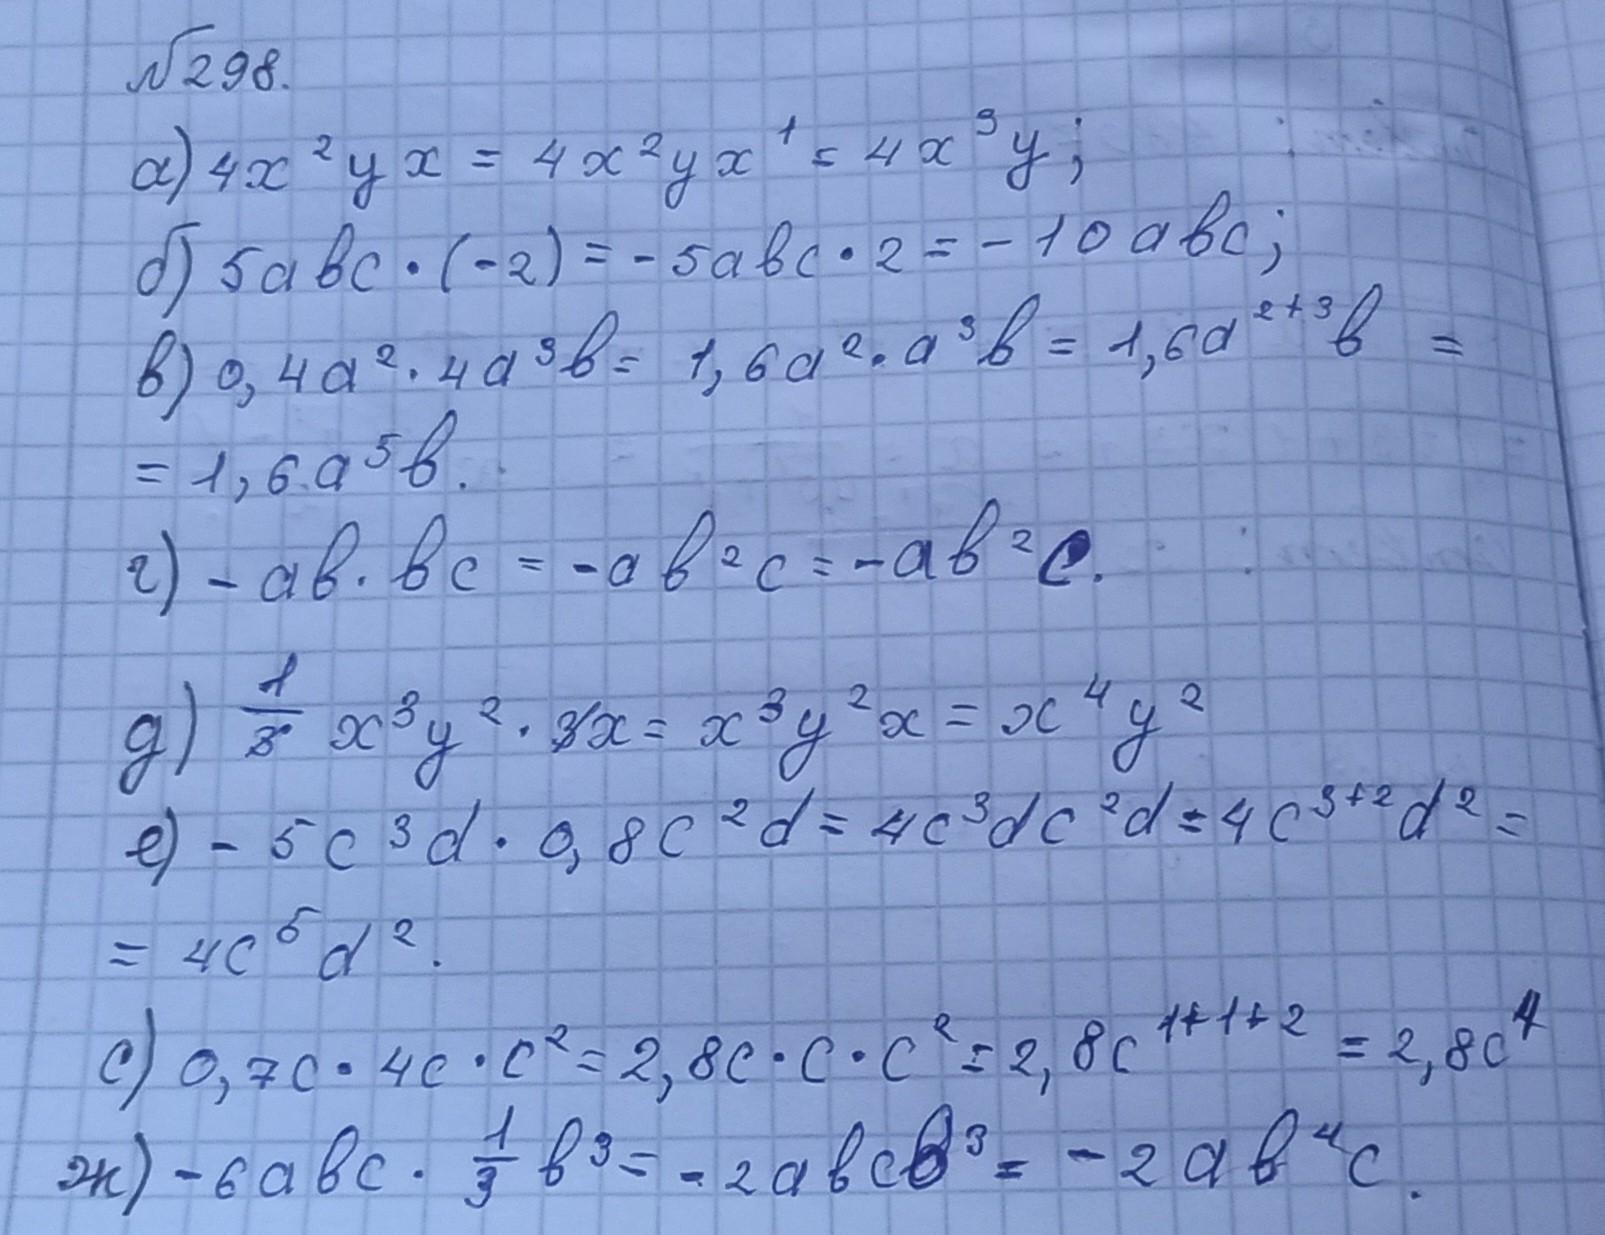 №298.
а) 4x²yx = 4x²yx¹ = 4x³y;
б) 5abc · (-2) = -5abc · 2 = -10abc;
в) 0,4a² · 4a³b = 1,6a² · a³b = 1,6a²⁺³b =
= 1,6a⁵b.
г) -ab · bc = -ab²c = -ab²c.
д) 1/3 x³y² · 3x = x³y²x = x⁴y²
е) -5c³d · 0,8c²d = 4c³dc²d = 4c³⁺²d² =
= 4c⁵d².
с) 0,7c · 4c · c² = 2,8c · c · c² = 2,8c¹⁺¹⁺² = 2,8c⁴
ж) -6abc · 1/3 b³ = -2abcb³ = -2ab⁴c.